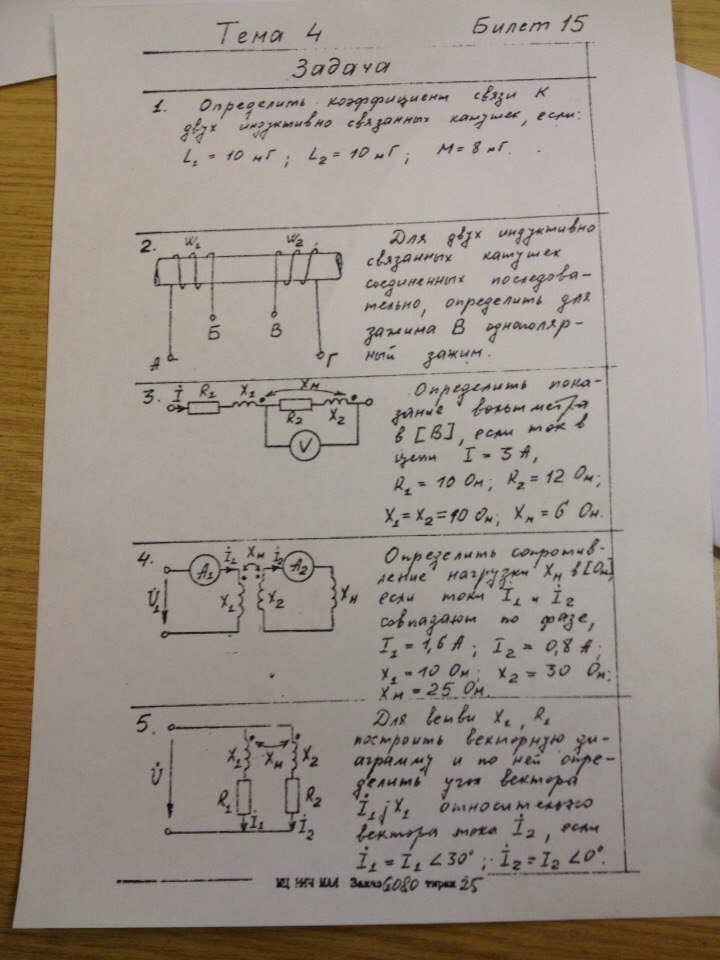 Тема 4 Билет 15
Задача
1. Определить коэффициент связи К
двух индуктивно связанных катушек, если:
L₁ = 10 мГ; L₂ = 10 мГ; М = 8 мГ.
2. W₁ W₂
А Б В Г
Для двух индуктивно
связанных катушек
соединенных последова-
тельно, определить для
зажима В однополяр-
ный зажим.
3. İ R₁ X₁ Xм R₂ X₂
V
Определить пока-
зание вольтметра
в [В], если ток в
цепи I = 3 А,
R₁ = 10 Ом; R₂ = 12 Ом;
X₁ = X₂ = 10 Ом; Xм = 6 Ом.
4. A₁ İ₁ Xм İ₂ A₂
U̇₁ X₁ X₂ Xн
Определить сопротив-
ление нагрузки Xн в [Ом]
если токи İ₁ и İ₂
совпадают по фазе,
I₁ = 1,6 А; I₂ = 0,8 А;
X₁ = 10 Ом; X₂ = 30 Ом;
Xм = 25 Ом.
5. U̇ X₁ Xм X₂
R₁ İ₁ R₂ İ₂
Для ветви X₁, R₁
построить векторную ди-
аграмму и по ней опре-
делить угол вектора
İ₁jX₁ относительно
вектора тока İ₂, если
İ₁ = I₁ ∠30°; İ₂ = I₂ ∠0°.
тираж 25